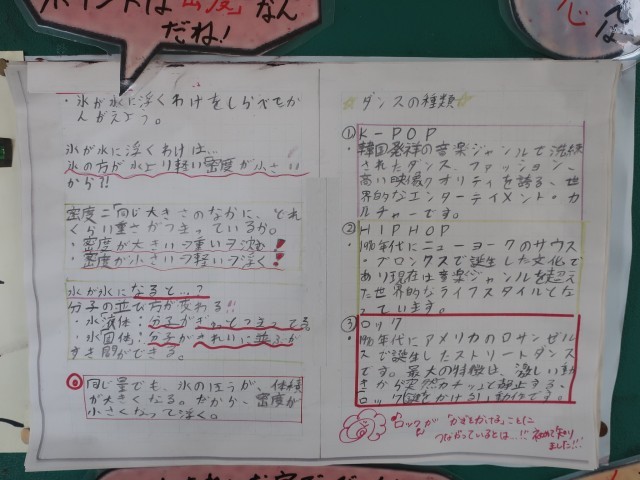 ポイントは「密度」なん
だね!
・氷が水に浮くわけをしらべてかん
がえよう。
氷が水に浮くわけは…
氷の方が水より軽い密度が小さい
から?!
密度=「同じ大きさのなかに、どれ
くらい重さがつまっているか。
・密度が大きい→重い→沈む!
・密度が小さい→軽い→浮く!
水が氷になると…?
分子の並び方が変わる!!
・水(液体):分子がぎゅっとつまってる
・氷(固体):分子がきれいに並ぶが
すき間ができる。
◎同じ量でも、氷のほうが、体積
が大きくなる。だから、密度が
小さくなって浮く。
☆ダンスの種類☆
①K-POP
・韓国発祥の音楽ジャンルで洗練
されたダンス、ファッション、
高い映像クオリティを誇る、世
界的なエンターテイメント・カ
ルチャーです。
②HIPHOP
1970年代にニューヨークのサウス
・ブロンクスで誕生した文化で
あり現在は音楽ジャンルを超え
た世界的なライフスタイルとな
っています。
③ロック
1970年代にアメリカのロサンゼル
スで誕生したストリートダンス
です。最大の特徴は、激しい動
きから突然「カチッ」と静止する、
ロック(鍵をかける)動作です。
ロックが「かぎをかける」ことに
つながっているとは…!!初めて知り
ました!!!